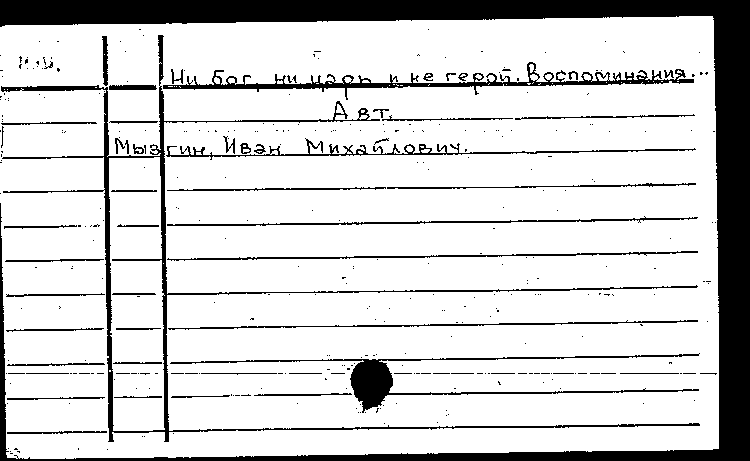 Ни бог, ни царь и не герой. Воспоминания...
Авт.
Мызгин, Иван Михайлович.